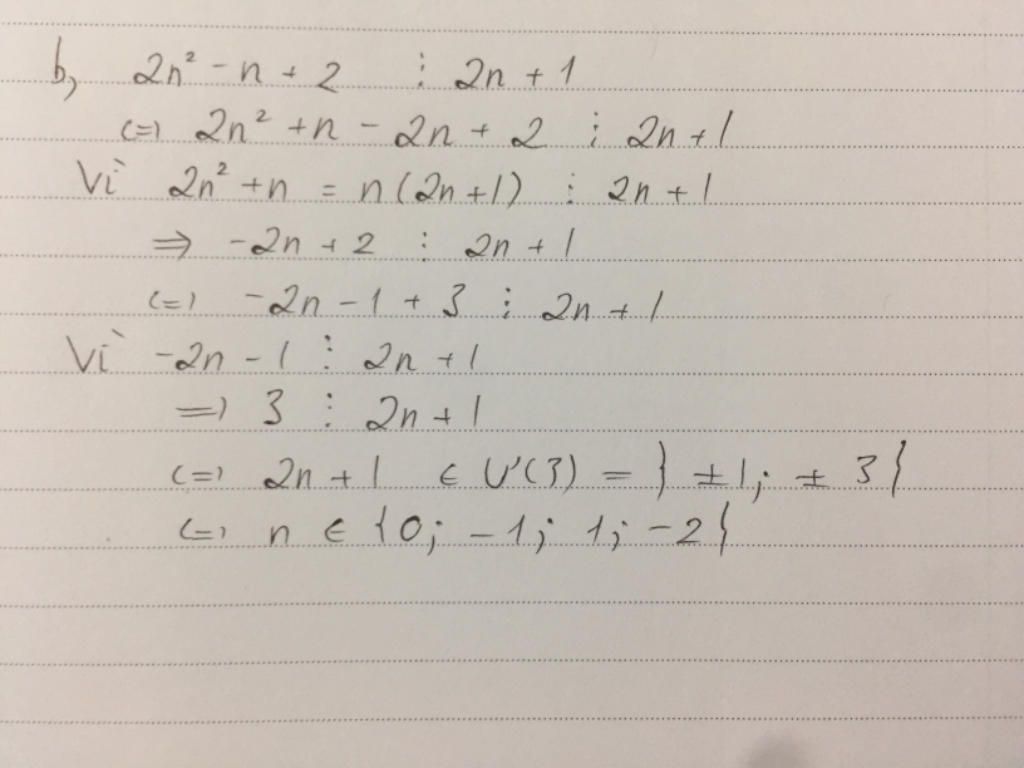 b, 2n² - n + 2 ⋮ 2n + 1
(=) 2n² + n - 2n + 2 ⋮ 2n + 1
Vì 2n² + n = n(2n + 1) ⋮ 2n + 1
⇒ -2n + 2 ⋮ 2n + 1
(=) -2n - 1 + 3 ⋮ 2n + 1
Vì -2n - 1 ⋮ 2n + 1
=) 3 ⋮ 2n + 1
(=) 2n + 1 ∈ Ư(3) = } ±1; ± 3 {
(=) n ∈ {0; -1; 1; -2}